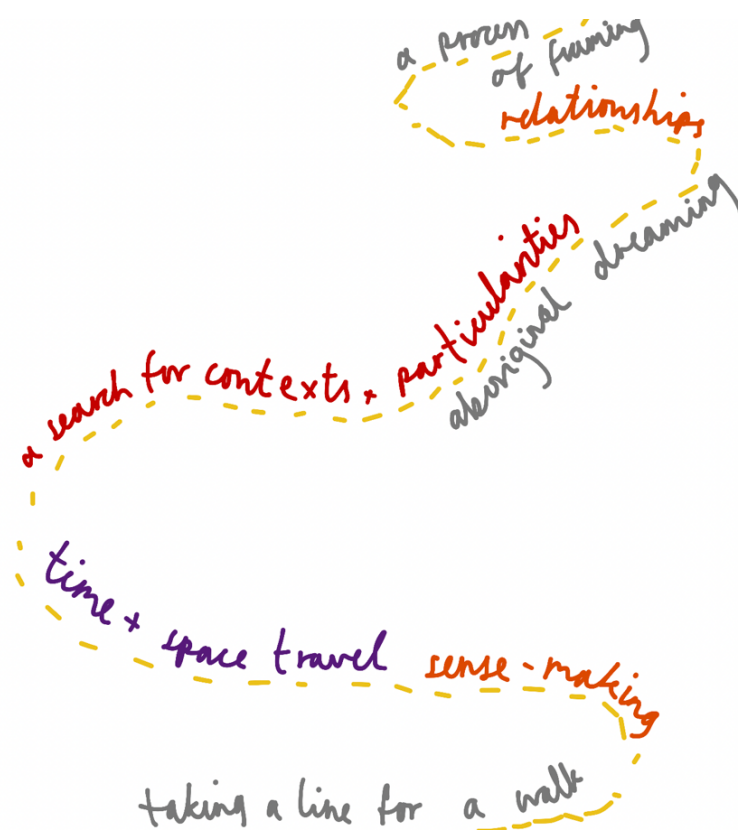 a process
of framing
relationships
aboriginal dreaming
a search for contexts + particularities
time + space travel
sense-making
taking a line for a walk